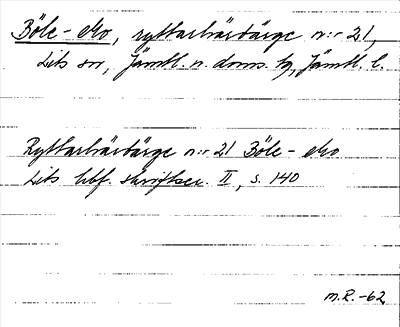 Böle-Mo, ryttarhärbärge n:r 21,
Lits sn, Jämtl. n. doms. tg, Jämtl. l.
Ryttarhärbärge n:r 21 Böle-Mo
Lits hbf. skriftser. II, s. 140
M.R.-62